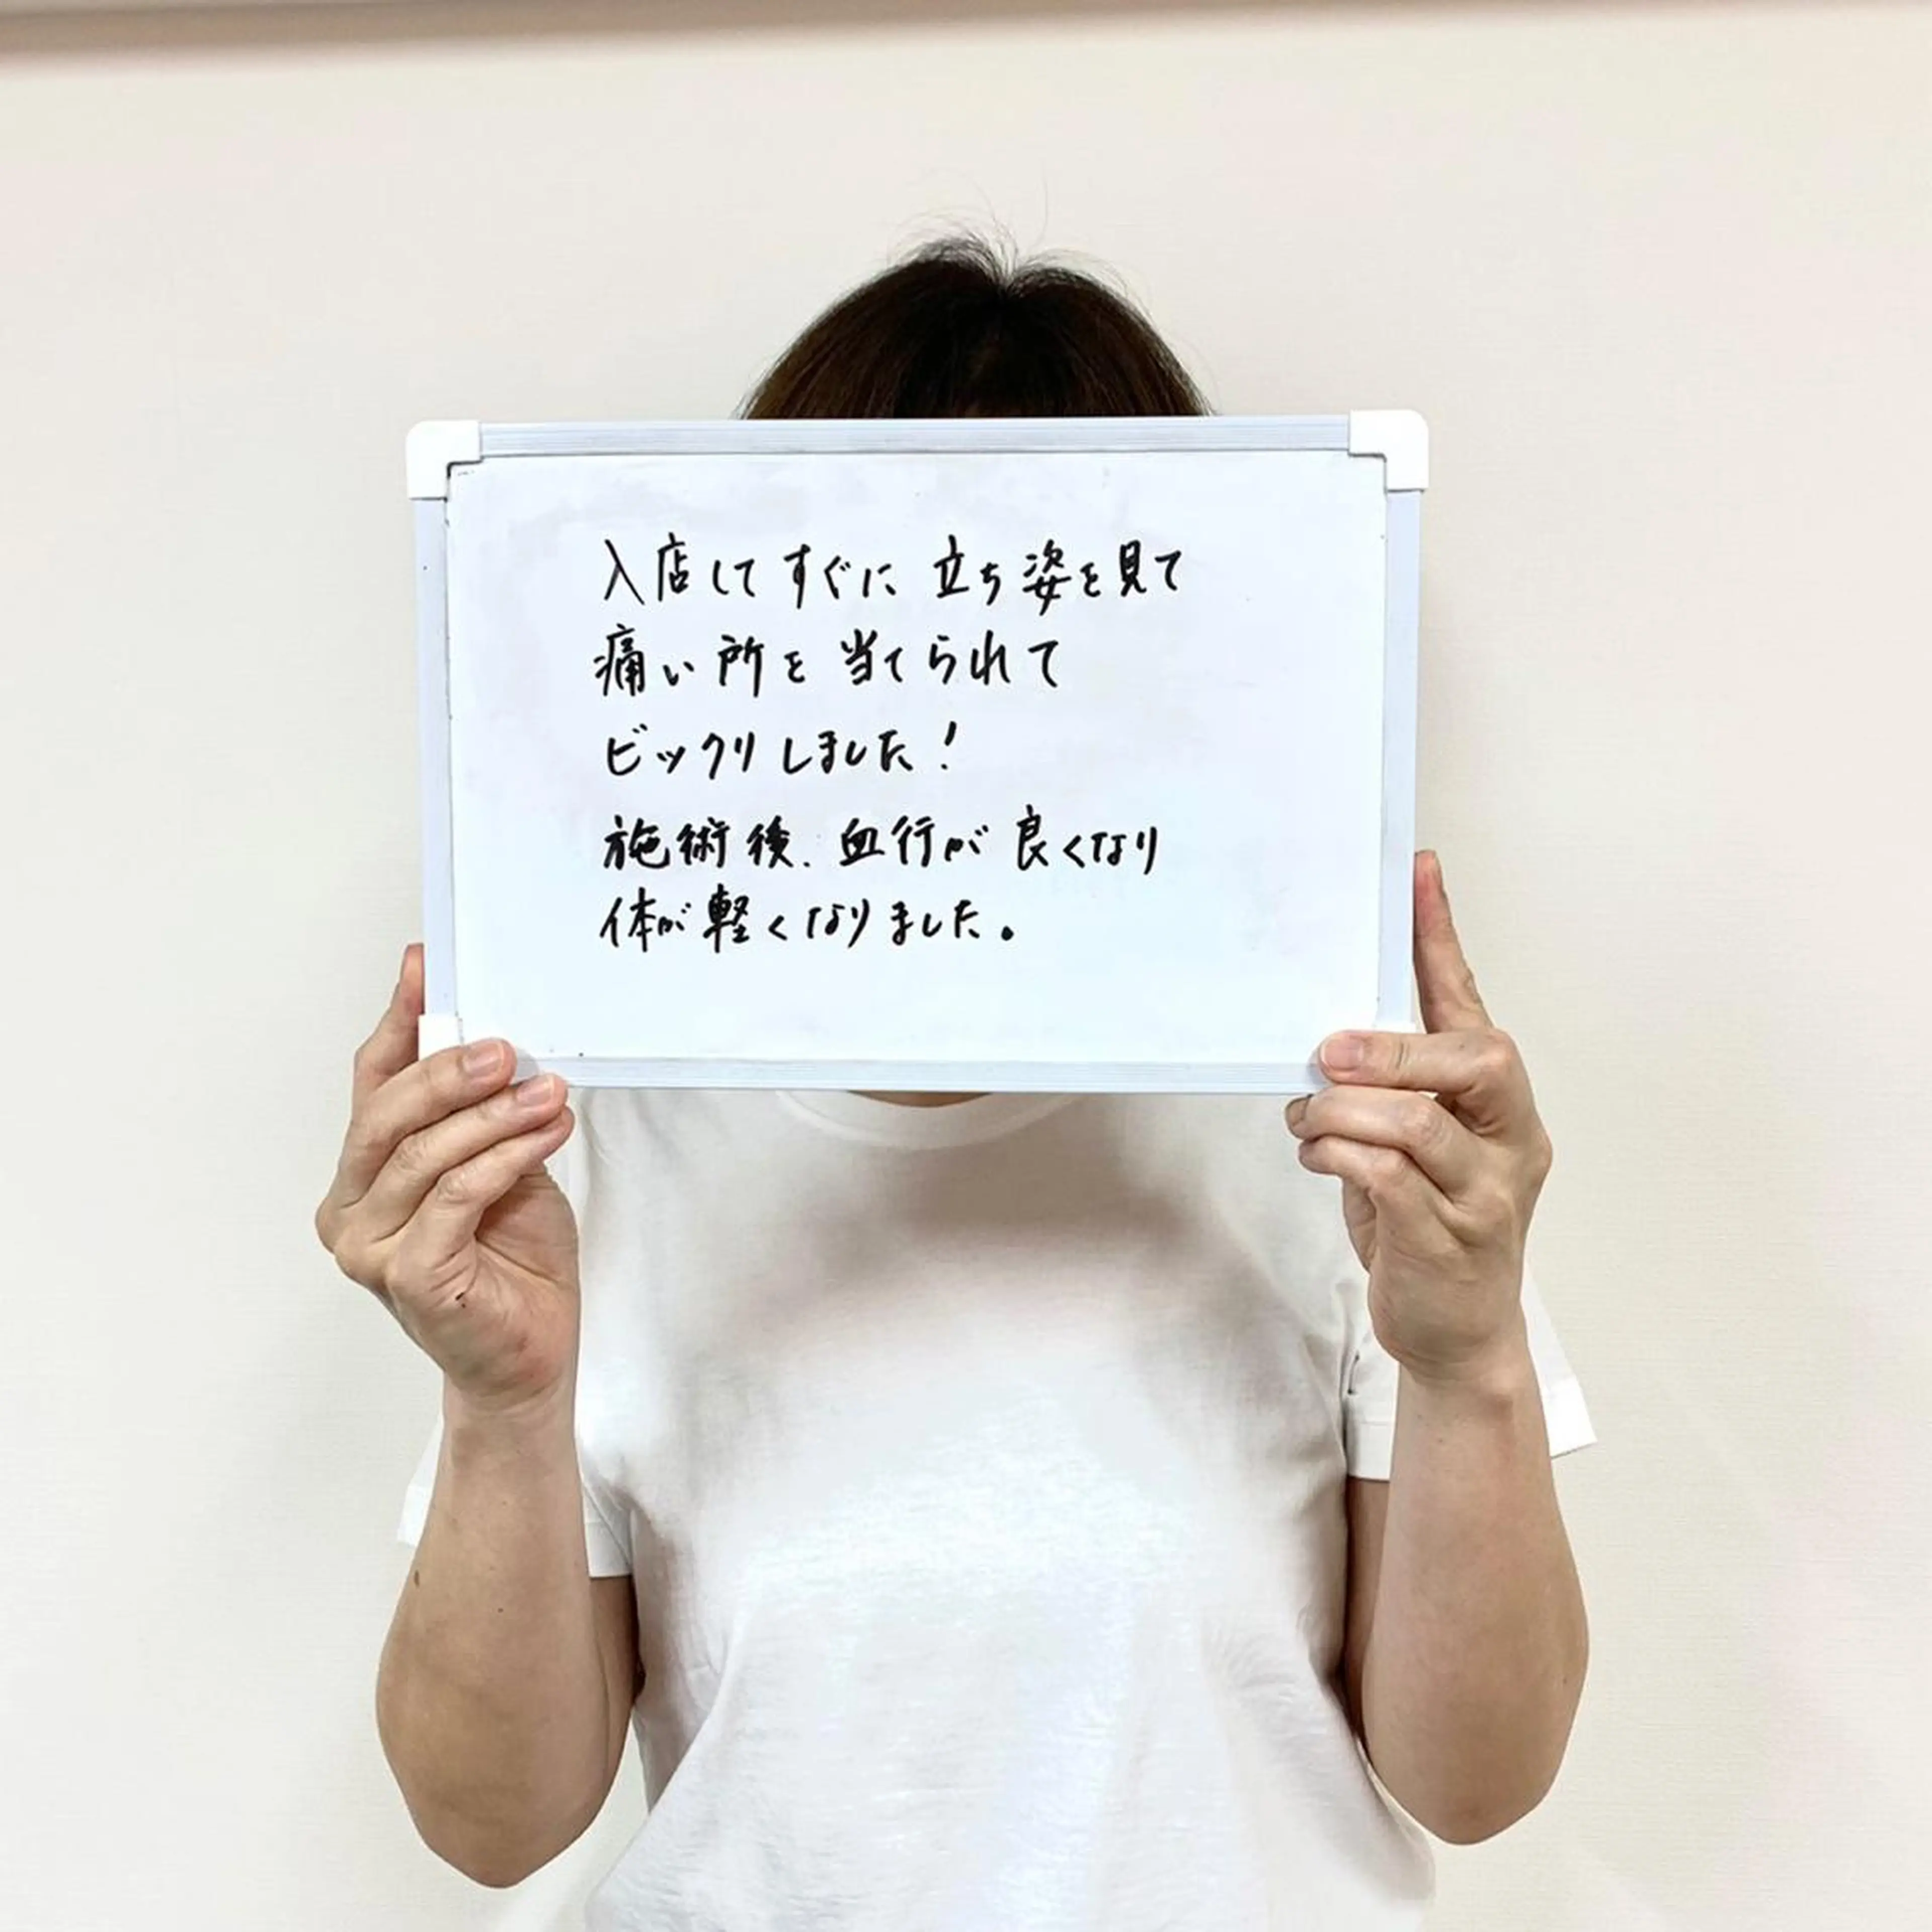 入店してすぐに立ち姿を見て
痛い所を当てられて
ビックリしました！
施術後、血行が良くなり
体が軽くなりました。